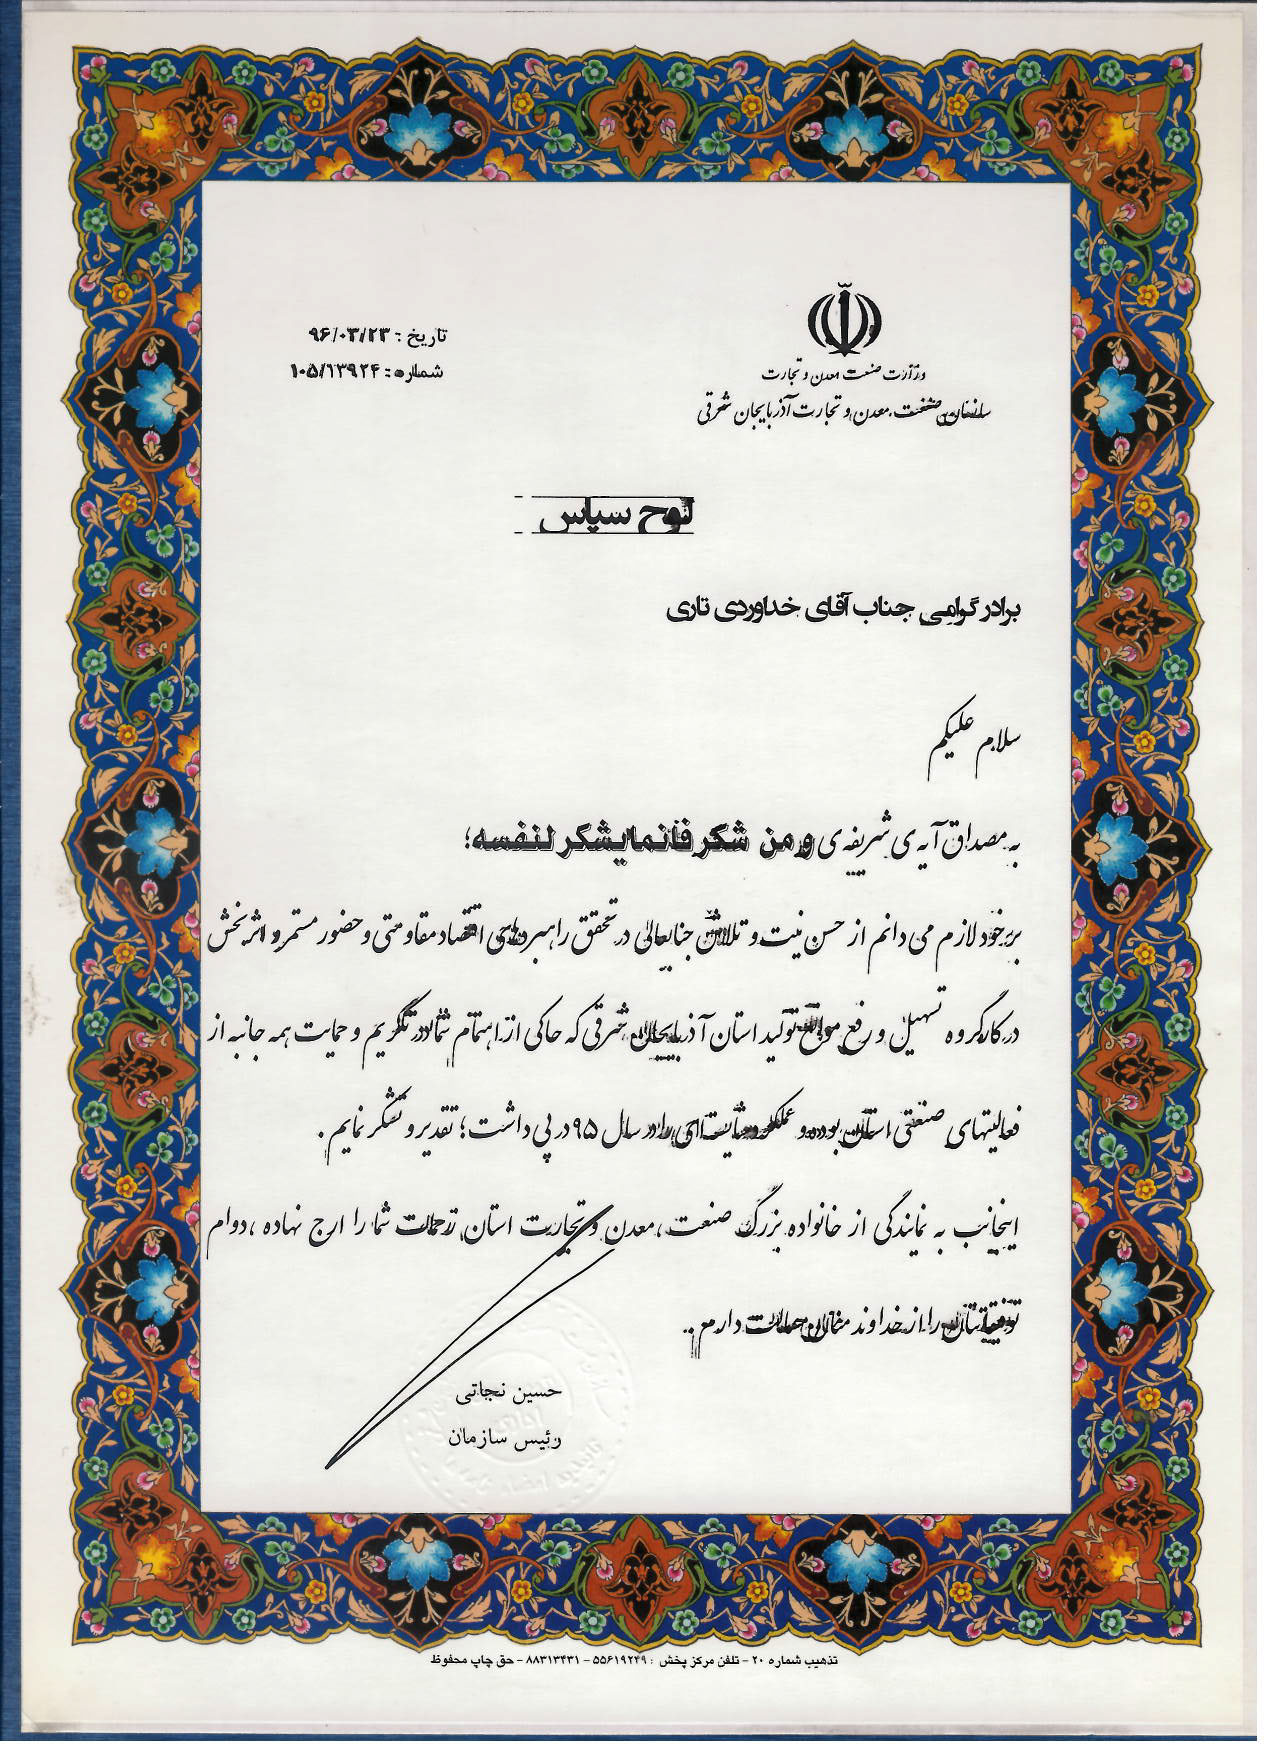 وزارت صنعت معدن و تجارت
سازمان صنعت، معدن و تجارت آذربایجان شرقی
تاریخ : ۹۶/۰۳/۲۳
شماره : ۱۰۵/۱۳۹۲۴
لوح سپاس
برادر گرامی جناب آقای خداوردی تاری
سلام علیکم
به مصداق آیه ی شریفه ی و من شکر فانما یشکر لنفسه؛
بر خود لازم می دانم از حسن نیت و تلاش جنابعالی در تحقق راهبردهای اقتصاد مقاومتی و حضور مستمر و اثربخش
در کارگروه تسهیل و رفع موانع تولید استان آذربایجان شرقی که حاکی از اهتمام شما در تکریم و حمایت همه جانبه از
فعالیتهای صنعتی استان بوده و عملکرد شایسته ای را در سال ۹۵ در پی داشت؛ تقدیر و تشکر نمایم.
اینجانب به نمایندگی از خانواده بزرگ صنعت، معدن و تجارت استان زحمات شما را ارج نهاده، دوام
توفیقاتتان را از خداوند منان دارم.
حسین نجاتی
رئیس سازمان
تذهیب شماره ۲۰ - تلفن مرکز پخش : ۵۵۶۱۹۲۴۹ - ۸۸۳۱۳۴۳۱ - حق چاپ محفوظ